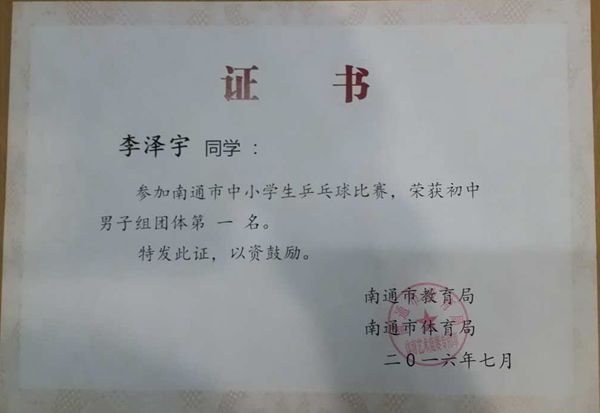 证 书
李泽宇 同学：
参加南通市中小学生乒乓球比赛，荣获初中
男子组团体第 一 名。
特发此证，以资鼓励。
南通市教育局
南通市体育局
二〇一六年七月